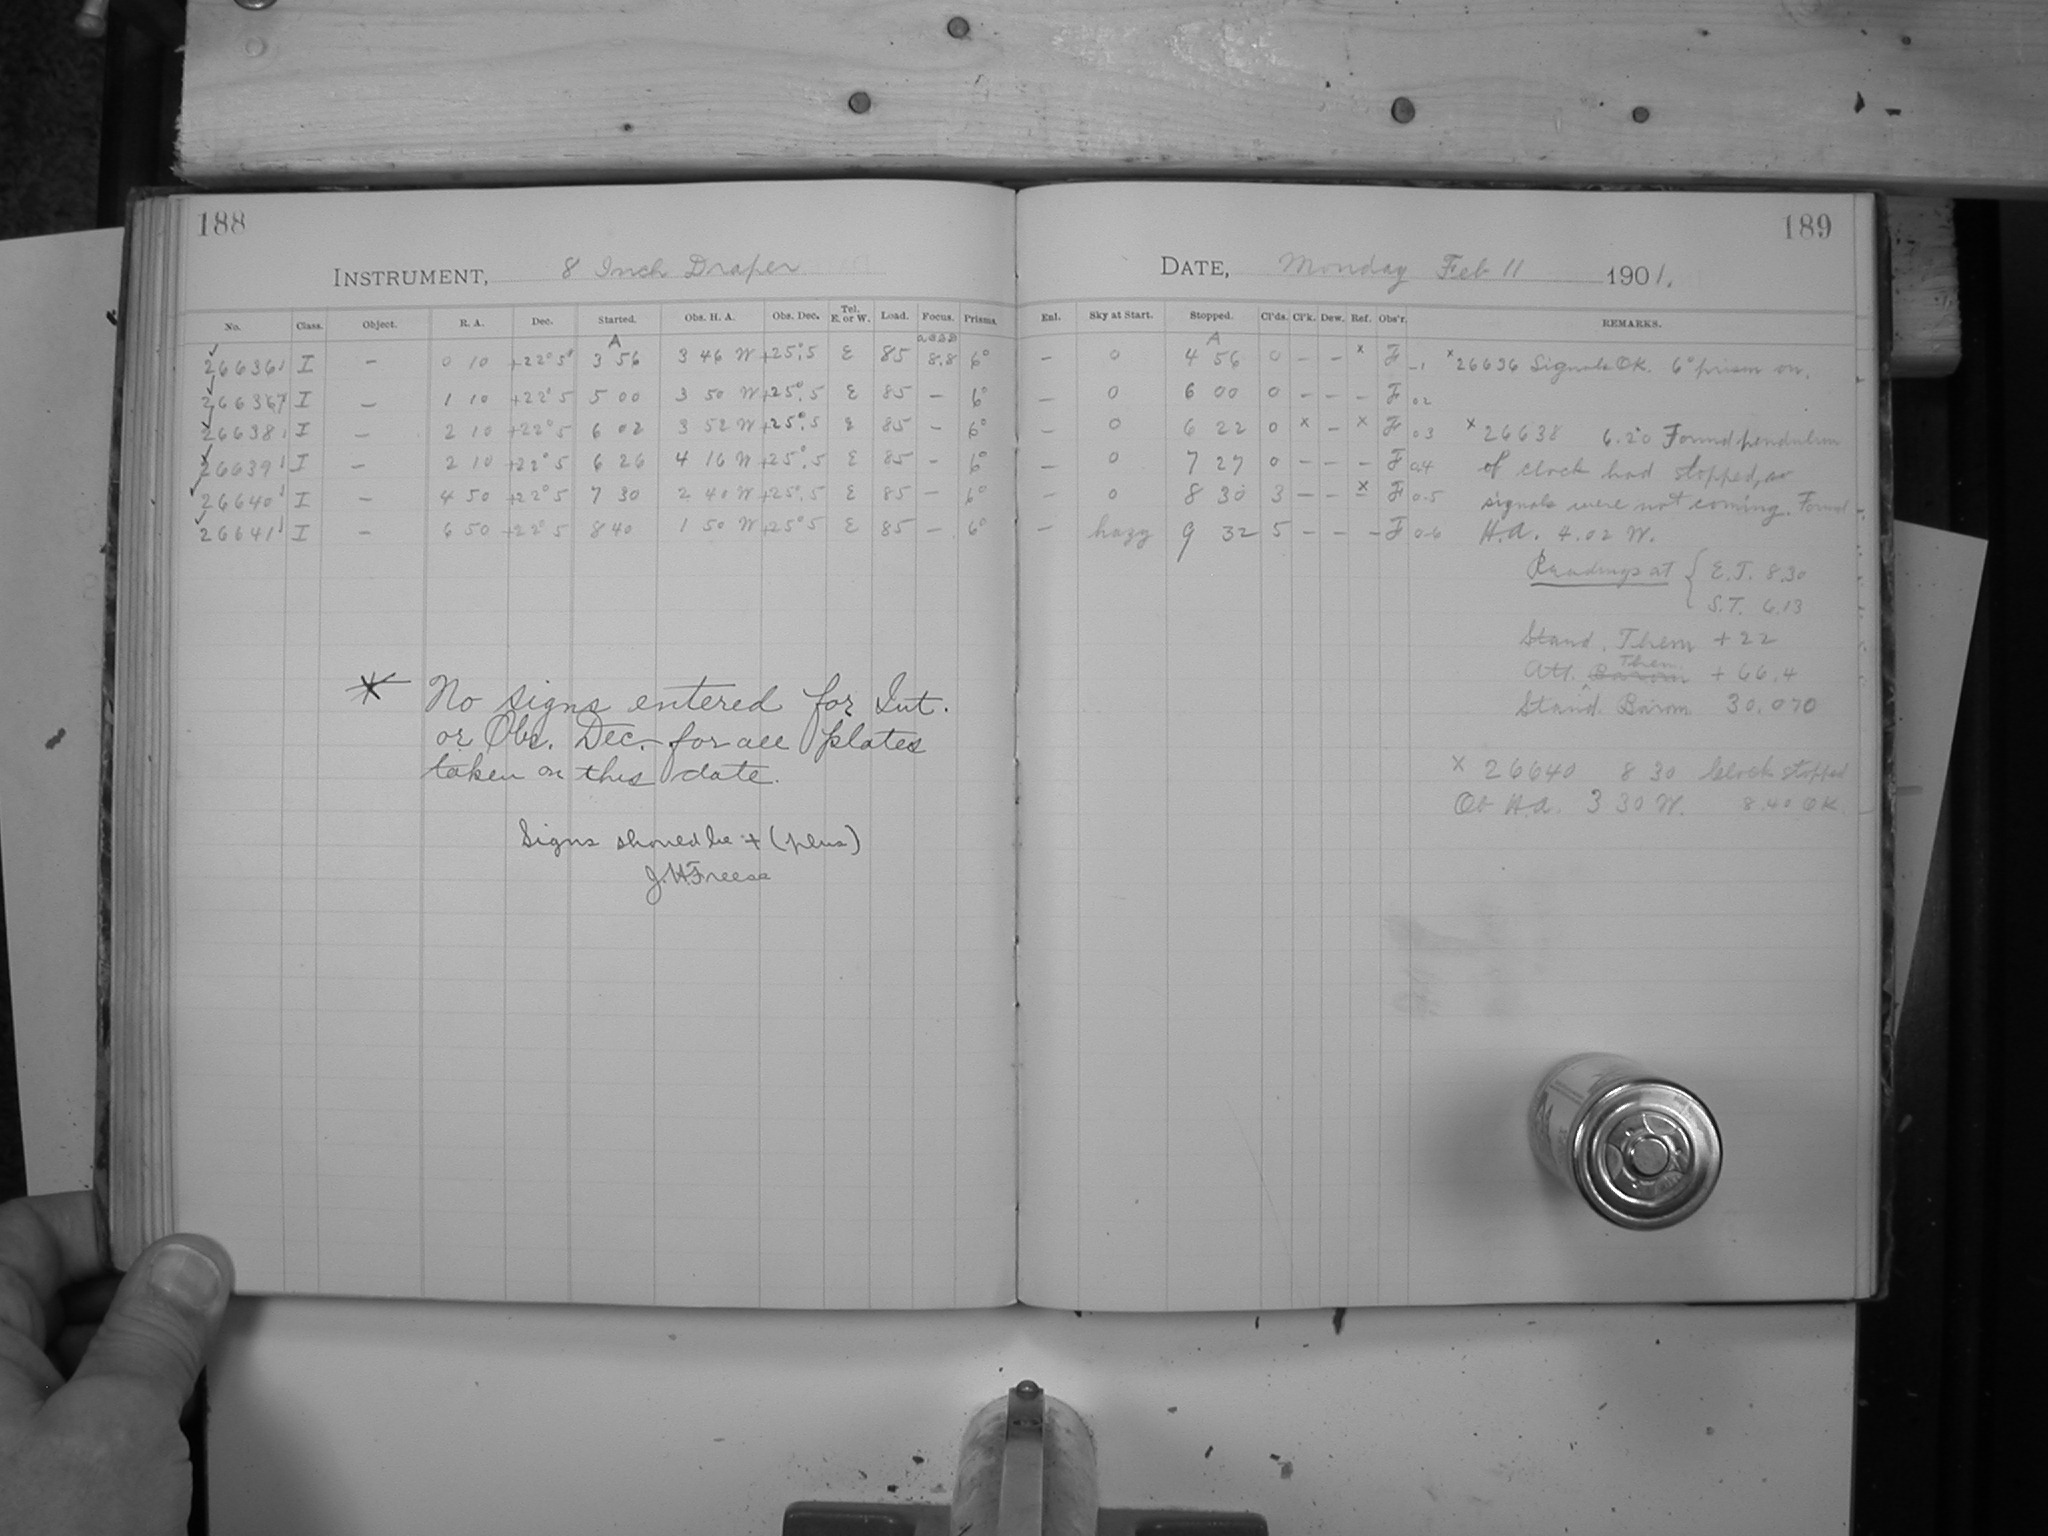 188
INSTRUMENT, 8 Inch Draper
No. Class. Object. R. A. Dec. Started. Obs. H. A. Obs. Dec. Tel. E. or W. Load. Focus. Prisms.
26636 I – 0 10 +22°5 A 3 56 3 46 W +25°.5 E 85 8.8 6°
26637 I – 1 10 +22°5 5 00 3 50 W +25°.5 E 85 – 6°
26638 I – 2 10 +22°5 6 02 3 52 W +25°.5 E 85 – 6°
26639 I – 2 10 +22°5 6 26 4 16 W +25°.5 E 85 – 6°
26640 I – 4 50 +22°5 7 30 2 40 W +25°.5 E 85 – 6°
26641 I – 6 50 +22°5 8 40 1 50 W +25°5 E 85 – 6°
* No signs entered for Int.
or Obs. Dec. for all plates
taken on this date.
Signs should be + (plus)
J.H. Freese
189
DATE, Monday Feb 11 1901.
Enl. Sky at Start. Stopped. Cl'ds. Cl'k. Dew. Ref. Obs'r. REMARKS.
– 0 A 4 56 0 – – x F -1 x 26636 Signals OK. 6° prism on.
– 0 6 00 0 – – – F 02
– 0 6 22 0 x – x F 03 x 26638 6.20 Found pendulum
– 0 7 27 0 – – – F 04 of clock had stopped, so
– 0 8 30 3 – – x F 05 signals were not coming. Found
– hazy 9 32 5 – – – F 06 H.A. 4.02 W.
Readings at { E.T. 8.30
S.T. 6.13
Stand. Therm +22
Att. Barom Ther. +66.4
Stand. Barom 30.070
x 26640 8 30 Clock stopped
Ob H.A. 3 30 W. 8.40 OK.